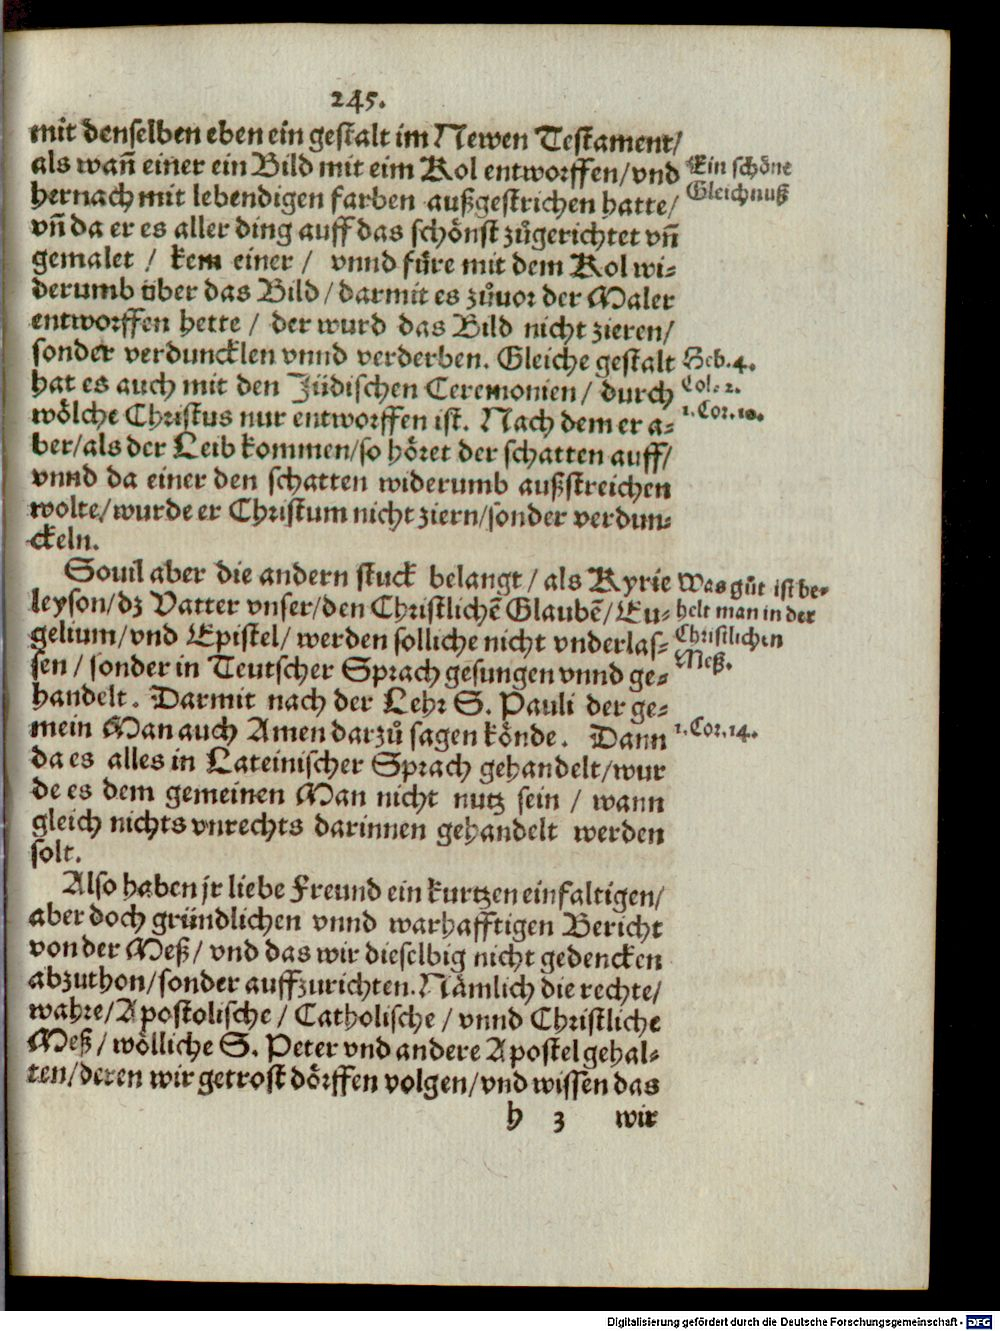 245.
mit denselben eben ein gestalt im Newen Testament/
als wañ einer ein Bild mit eim Kol entworffen/vnd
Ein schöne
hernach mit lebendigen farben außgestrichen hatte/
Gleichnuß
vñ da er es aller ding auff das schönst zůgerichtet vñ
gemalet / kem einer / vnnd füre mit dem Kol wi-
derumb über das Bild / darmit es zůuor der Maler
entworffen hette / der wurd das Bild nicht zieren/
sonder verduncklen vnnd verderben. Gleiche gestalt
Heb. 4.
hat es auch mit den Jüdischen Ceremonien / durch
Col. 2.
wölche Christus nur entworffen ist. Nach dem er a-
1. Cor. 10.
ber/als der Leib kommen/so höret der schatten auff/
vnnd da einer den schatten widerumb außstreichen
wolte/wurde er Christum nicht ziern/sonder verdun-
ckeln.
Souil aber die andern stuck belangt / als Kyrie
Was gůt ist be-
leyson/dz Vatter vnser/den Christlichẽ Glaubẽ/Eu-
helt man in der
gelium/vnd Epistel/ werden solliche nicht vnderlas-
Christlichen
sen / sonder in Teutscher Sprach gesungen vnnd ge-
Meß.
handelt. Darmit nach der Lehr S. Pauli der ge-
mein Man auch Amen darzů sagen könde. Dann
1. Cor. 14.
da es alles in Lateinischer Sprach gehandelt/wur
de es dem gemeinen Man nicht nutz sein / wann
gleich nichts vnrechts darinnen gehandelt werden
solt.
Also haben jr liebe Freund ein kurtzen einfaltigen/
aber doch gründlichen vnnd warhafftigen Bericht
von der Meß/ vnd das wir dieselbig nicht gedencken
abzuthon/sonder auffzurichten. Nämlich die rechte/
wahre/Apostolische / Catholische / vnnd Christliche
Meß / wölliche S. Peter vnd andere Apostel gehal-
ten/deren wir getrost dörffen volgen/vnd wissen das
h 3 wir
Digitalisierung gefördert durch die Deutsche Forschungsgemeinschaft - DFG